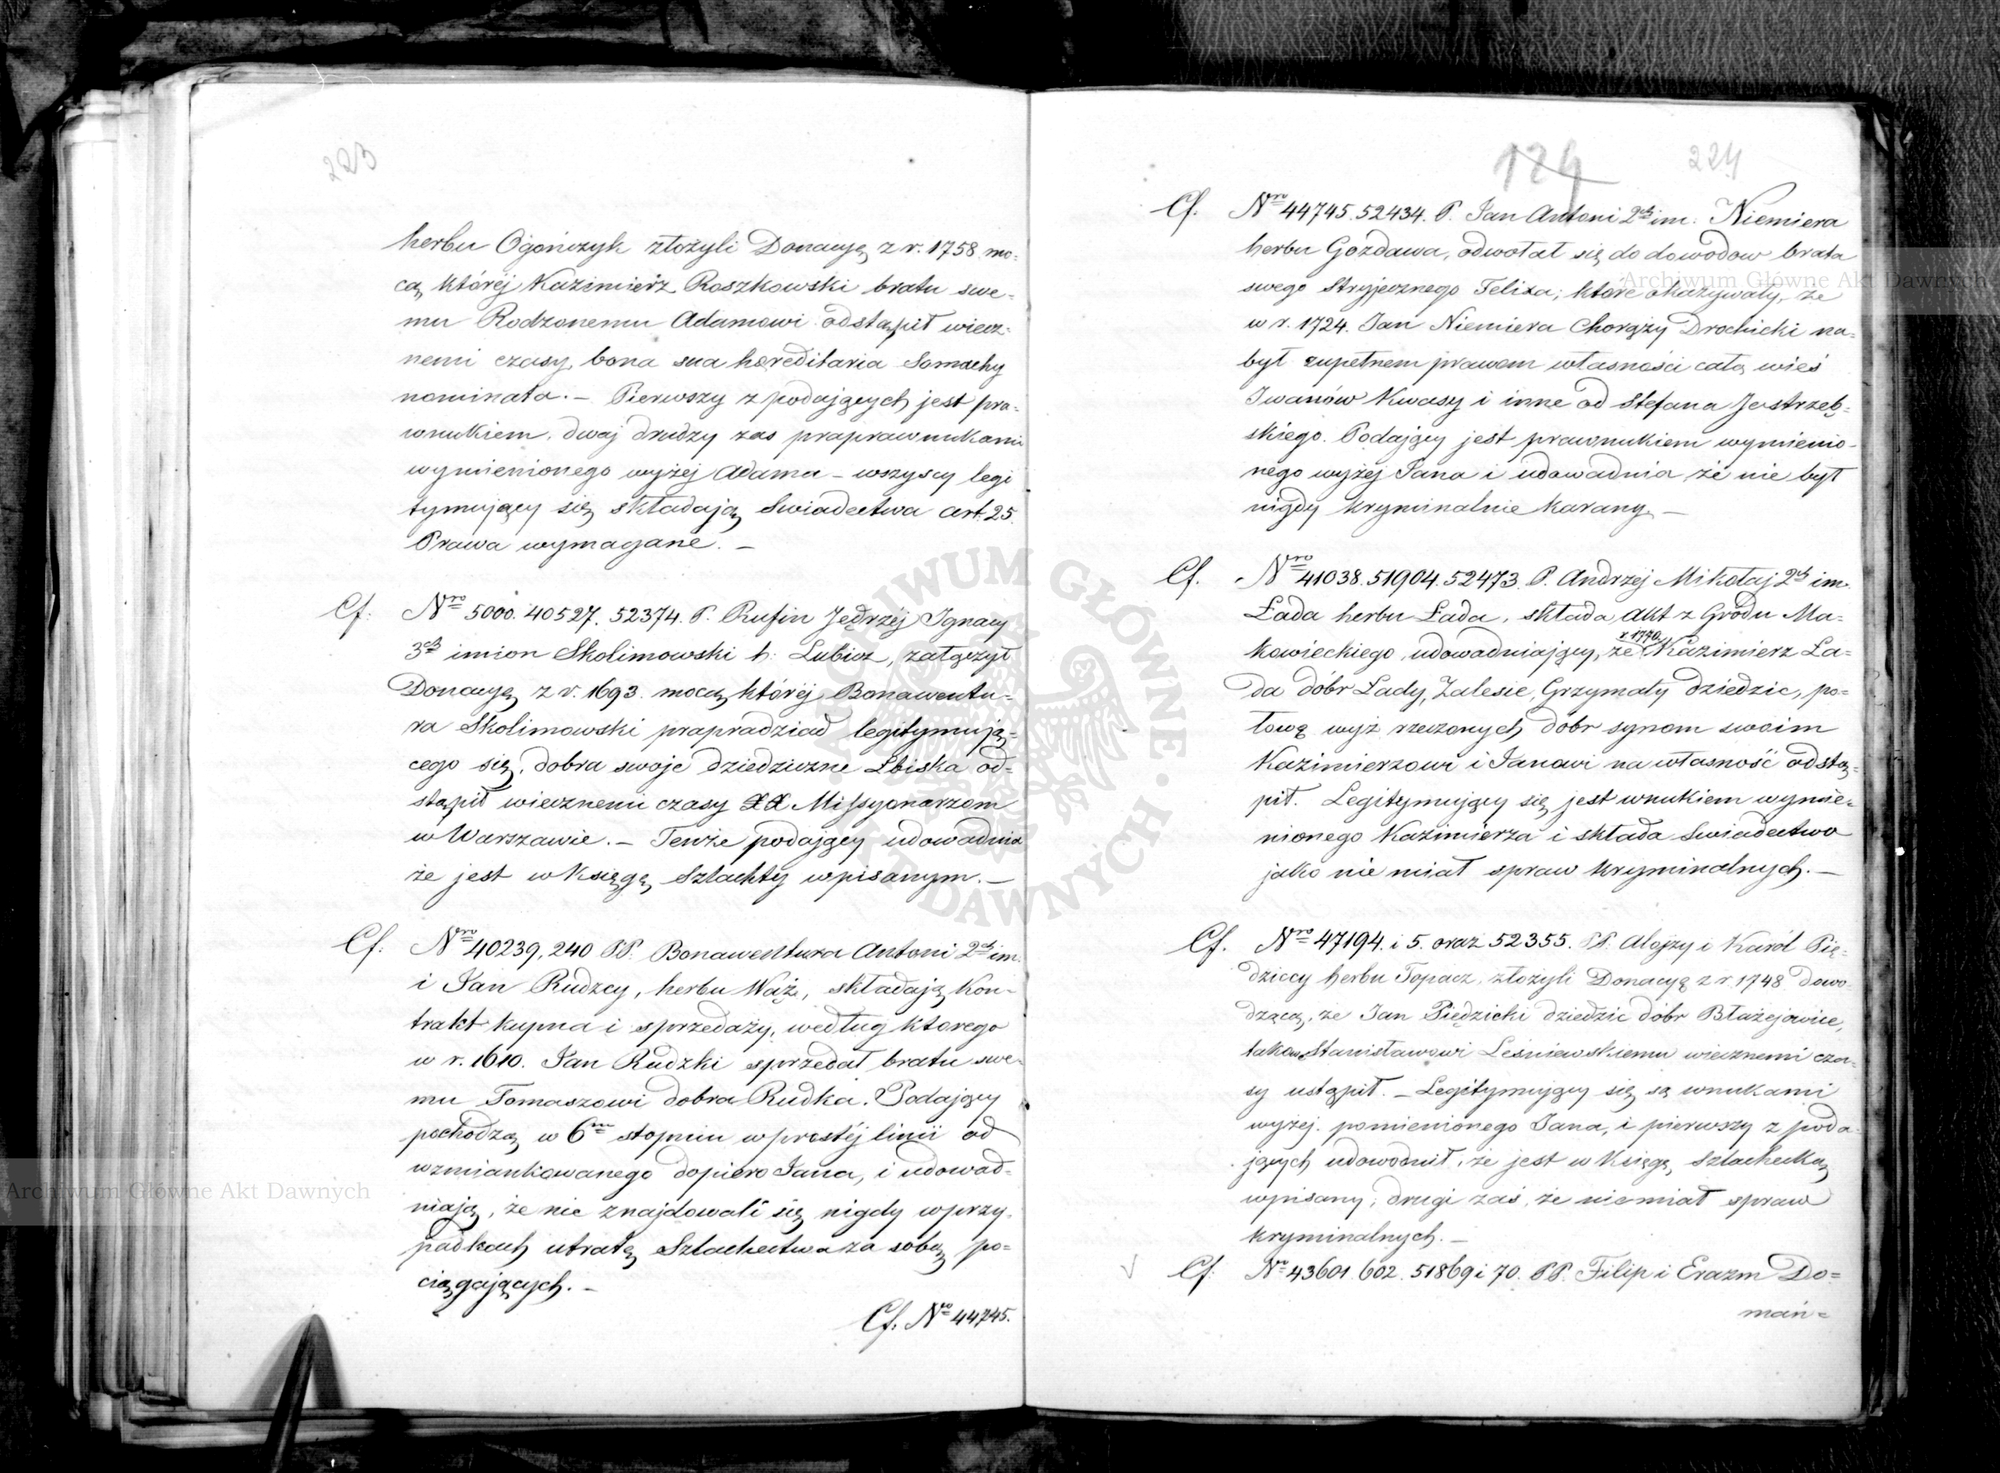 223
herbu Ogończyk złożyli Donacyą z r. 1758 mo-
cą któréj Kazimierz Roszkowski bratu swe-
mu Rodzonemu Adamowi odstąpił wiecz-
nemi czasy bona sua hereditaria Somachy
nominata. — Pierwszy z podających jest pra-
wnukiem, dwaj drudzy zas praprawnukami
wymienionego wyżej Adama — wszyscy legi
tymujący się składają Swiadectwa art. 25.
Prawa wymagane. —
Cf: Nro 5000. 40527. 52374. P. Rufin Jędrzéj Ignacy
3ch imion Skolimowski h: Lubicz, załączył
Donacyą z r. 1693. mocą któréj Bonawentu-
ra Skolimowski prapradziad legitymują-
cego się, dobra swoje dziedziczne Łbiska od-
stąpił wiecznemi czasy XX Missyonarzom
w Warszawie. — Tenże podający udowadnia
że jest w Księgę Szlachty wpisanym. —
Cf: Nro 40239, 240 PP. Bonawentura Antoni 2ch im.
i Jan Rudzcy, herbu Wąż, składają Kon-
trakt kupna i sprzedaży, według ktorego
w r. 1610. Jan Rudzki sprzedał bratu swe-
mu Tomaszowi dobra Rudka. Podający
pochodzą w 6m stopniu w prostéj linii od
wzmiankowanego dopiero Jana, i udowad-
niają, że nie znajdowali się nigdy w przy-
padkach utratę Szlachectwa za sobą po-
ciągających. —
Cf: Nro 44745.
124
224
Cf. Nro 44745. 52434. P. Jan Antoni 2ch im: Niemiera
herbu Gozdawa, odwołał się do dowodow brata
swego Stryjecznego Felixa; które okazywały, że
w r. 1724. Jan Niemiera Chorąży Drohicki na-
był zupełnem prawem własności całą wieś
Iwanów Kwasy i inne od Stefana Jastrzęb-
skiego. Podający jest prawnukiem wymienio-
nego wyżéj Jana i udowadnia że nie był
nigdy kryminalnie karany —
Cf. Nro 41038. 51904. 52473. P. Andrzej Mikołaj 2ch im.
Łada herbu Łada, składa Akt z Grodu Ma-
kowieckiego, udowadniający, że r 1790 Kazimierz Ła-
da dóbr Łady, Zalesie, Grzymały dziedzic, po-
łowę wyż rzeczonych dobr synom swoim
Kazimierzowi i Janowi na własność odstą-
pił. Legitymujący się jest wnukiem wymie-
nionego Kazimierza i składa Swiadectwo
jako nie miał spraw kryminalnych. —
Cf. Nro 47194. i 5. oraz 52355. PP. Alojzy i Karól Pię-
dziccy herbu Topacz, złożyli Donacyą z r. 1748 dowo-
dzącą, że Jan Piędzicki dziedzic dóbr Błażejowice,
takowe Stanisławowi Leśniewskiemu wiecznemi cza-
sy ustąpił. — Legitymujący się są wnukami
wyżej pomienionego Jana, i pierwszy z poda-
jących udowodnił, że jest w Księgę Szlachecką
wpisany, drugi zaś, że nie miał spraw
kryminalnych. —
Cf: Nro 43601. 602. 51869 i 70. PP. Filip i Erazm Do=
mań=
Archiwum Główne Akt Dawnych
Archiwum Główne Akt Dawnych
ARCHIWUM GŁÓWNE AKT DAWNYCH